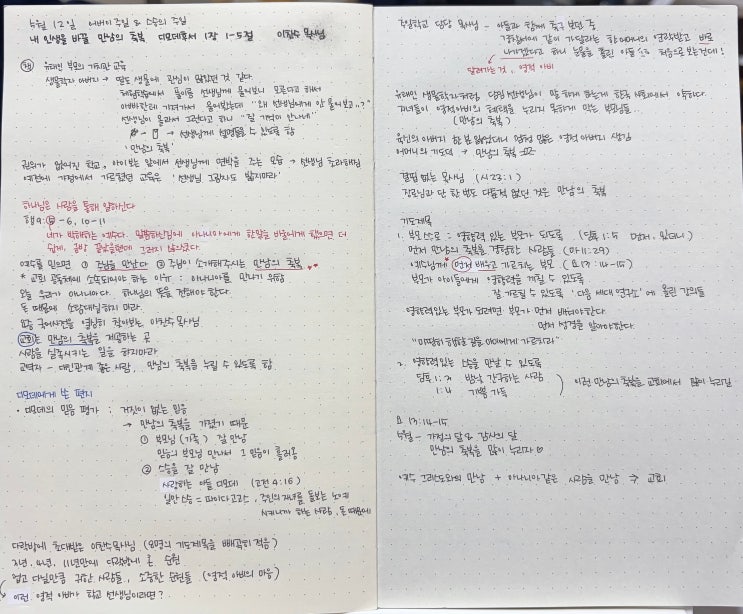 5월 12일 어버이주일 & 스승의 주일
내 인생을 바꿀 만남의 축복 디모데후서 1장 1-5절 이찬수 목사님
유태인 부모의 가정교육
생물학자 아버지 → 딸도 생물에 관심이 많았던 것 같다.
체험학습에서 풀이름 선생님께 물어보니 모른다고 해서
아빠한테 가져가서 물어봤는데 "왜 선생님에게 안 물어보고..?"
선생님이 몰라서 그런다고 하니 "잘 기억이 안나네"
→ 선생님께 설명들을 수 있도록 함
'만남의 축복'
권위가 없어진 학교, 아이보는 앞에서 선생님께 면박을 주는 모습 → 선생님 초라해짐
옛전에 가정에서 가르쳤던 교육은 '선생님 그림자도 밟지마라'
하나님은 사람을 통해 일하신다
행 9: 5-6, 10-11
네가 박해하는 예수다. 말씀하신김에 아나니아에게 한말을 바울에게 했으면 더
쉽게, 금방 끝났을텐데 그러지 않으셨다.
예수를 믿으면 ① 주님을 만난다 ② 주님이 소개해주시는 만남의 축복
* 교회 공동체에 소속되어야 하는 이유 : 아나니아를 만나기 위함
오늘 우리가 아나니아다. 하나님의 뜻을 전해야 한다.
돈 때문에 소탐대실하지 마라.
요즘 국어사전을 열심히 찾아보는 이찬수 목사님
교회는 만남의 축복을 제공하는 곳
사람을 실족시키는 일을 하지마라
교역자 - 대인관계 좋은 사람, 만남의 축복을 누릴 수 있도록 함
디모데에게 쓴 편지
· 디모데의 믿음 평가 : 거짓이 없는 믿음
→ 만남의 축복을 가졌기 때문
① 부모님 (가족) 잘 만남
믿음의 부모님 만나서 그 믿음이 흘러옴
② 스승을 잘 만남
사랑하는 아들 디모데 (고전 4:16)
일만 스승 = 파이다고고스, 주인의 자녀를 돌보는 노예
시키니까 하는 사람, 돈 때문에
다락방에 초대받은 이찬수목사님 (8명의 기도제목을 빼곡히 적음)
3년, 4년, 11년만에 다락방에 온 순원
업고 다닐만큼 귀한 사람들, 소중한 순원들 (영적 아비의 마음)
이런 영적 아비가 학교 선생님이라면?
주일학교 담당 목사님 - 아들과 함께 축구 보던 중
경찰서에 같이 가달라는 한 어머니의 연락받고 바로
나가겠다고 하니 눈물을 흘린 아들
달려가는 것, 영적 아비
유태인 생물학자처럼 담임선생님이 말하게 하는게 한국 사회에서 약하다.
자녀들이 영적아비의 혜택을 누리지 못하게 막는 부모님들..
(만남의 축복)
육신의 아버지 한 분 잃었더니 몇천 많은 영적 아버지 생김
어머니의 기도덕 → 만남의 축복
결핍 없는 목사님 (시 23:1)
장로님과 단 한 번도 다툼적 없던 것은 만남의 축복
기도제목
1. 부모스스로 : 영향력 있는 부모가 되도록 (딤후 1:5 먼저, 있더니)
먼저 만남의 축복을 경험한 사람들 (마 11:29)
예수님께 먼저 배우고 가르치는 부모 (요 13:14-15)
부모가 아이들에게 영향력을 끼칠 수 있도록
잘 가르칠 수 있도록 '다음 세대 연구소'에 올린 강의들
영향력있는 부모가 되려면 부모가 먼저 배워야한다.
먼저 성경을 알아야한다.
"마땅히 행할 길을 아이에게 가르치라"
2. 영향력 있는 스승을 만날 수 있도록
딤후 1:3 밤낮 간구하는 사람
1:4 기쁨 가득
이런 만남의 축복을 교회에서 많이 누리길
요 13:14-15
5월 - 가정의 달 & 감사의 달
만남의 축복을 많이 누리자
예수 그리스도와의 만남 + 아나니아 같은 사람을 만남 ⇒ 교회